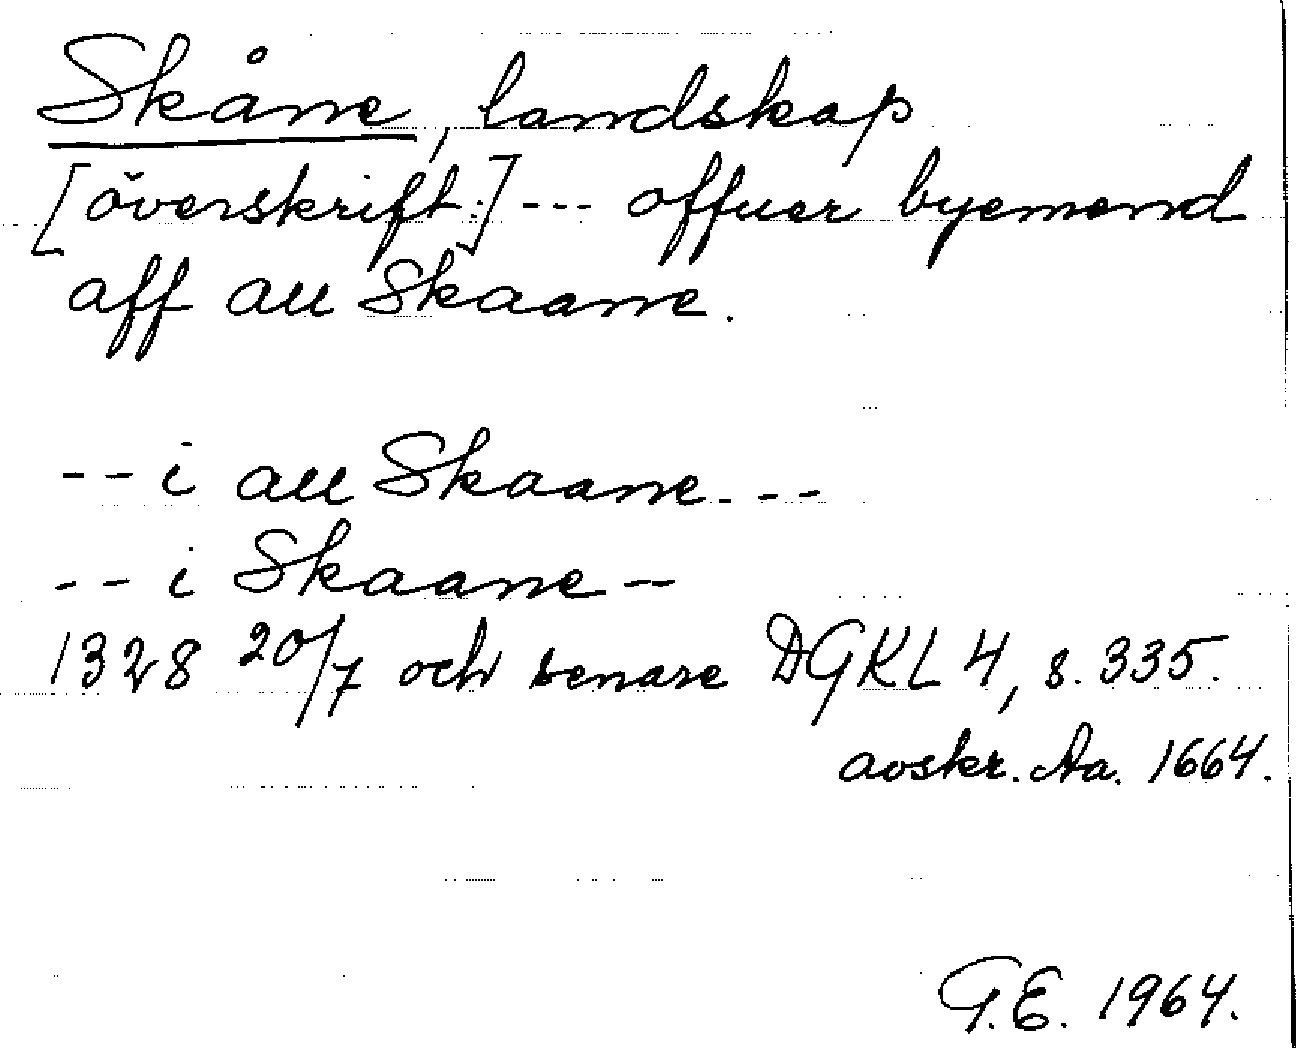 Skåne, landskap
[överskrift:] --- offuer byemend
aff all Skaane.
-- i all Skaane. --
-- i Skaane –
1328 20/7 och senare DGKL 4, s. 335.
avskr. Aa. 1664.
G.E. 1964.